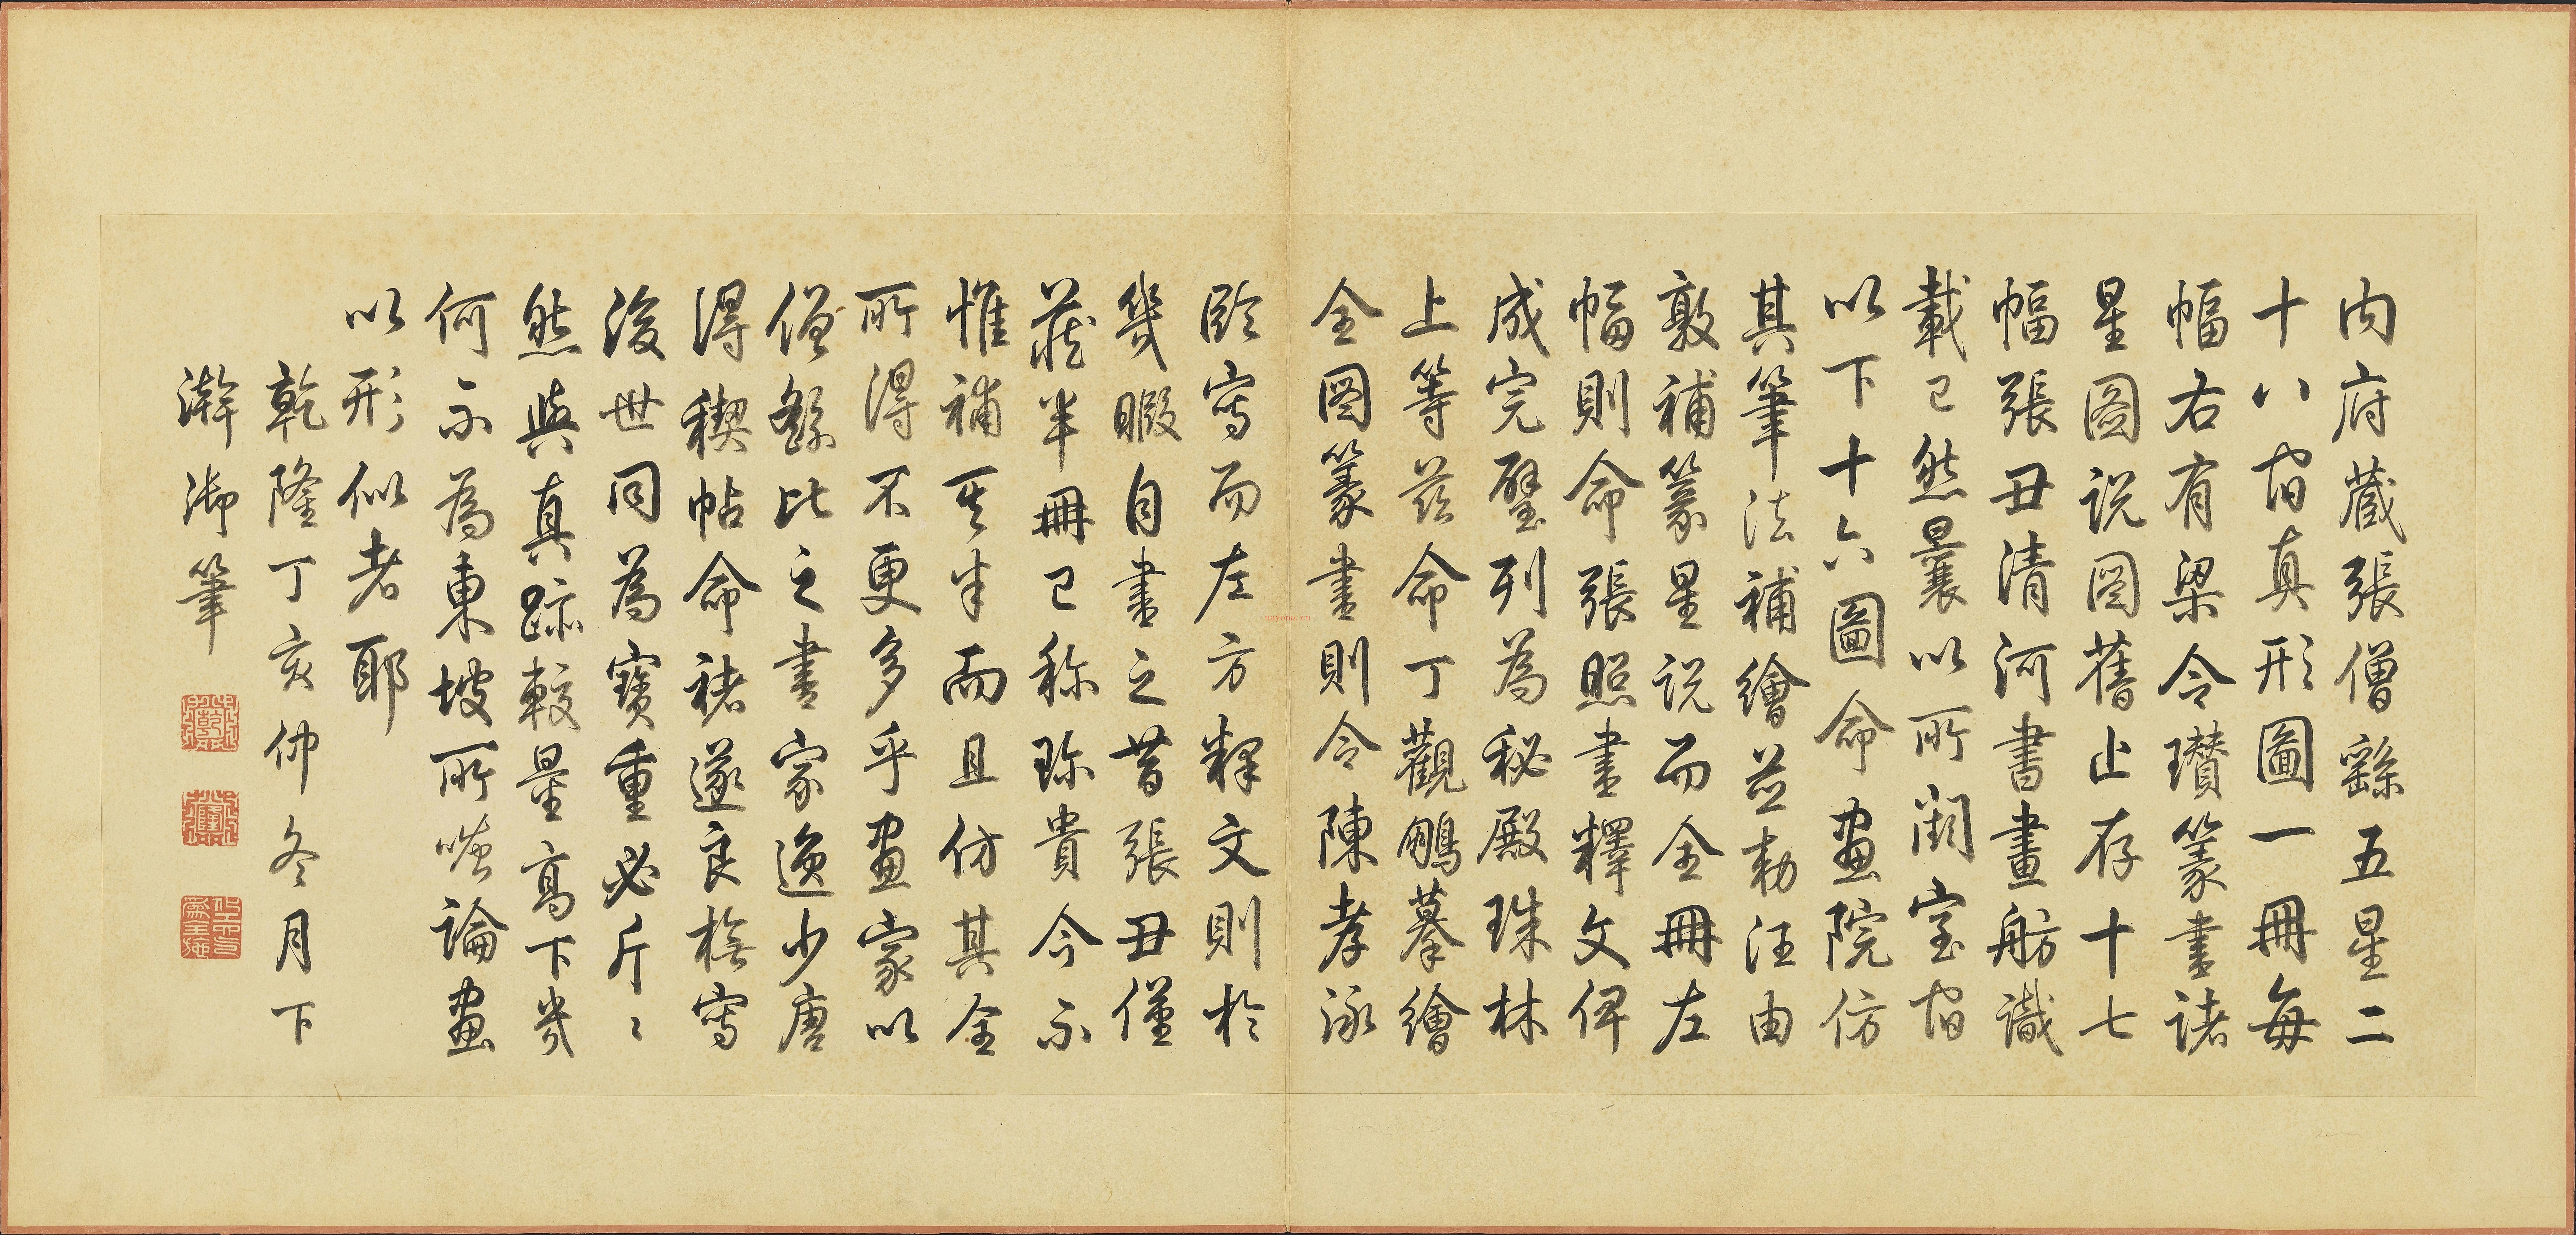 内府藏張僧繇五星二
十八宿真形圖一冊每
幅右有梁令瓚篆書諸
星圖說圖舊止存十七
幅張丑清河書畫舫識
載已然曩以所闕室宿
以下十六圖命畫院仿
其筆法補繪並勅汪由
敦補篆星說而全冊左
幅則命張照書釋文俾
成完璧列為秘殿珠林
上等茲命丁觀鵬摹繪
全圖篆書則令陳孝泳
臨寫而左方釋文則於
幾暇自書之昔張丑僅
藏半冊已稱珍貴今不
惟補其半而且仿其全
所得得不更多乎畫家以
僧繇比之書家逸少唐
得稧帖命褚遂良橅寫
後世同為寶重必斤〻
然與真跡較量高下幾
何不為東坡所嗤論畫
以形似者耶
乾隆丁亥仲冬月下
澣御筆